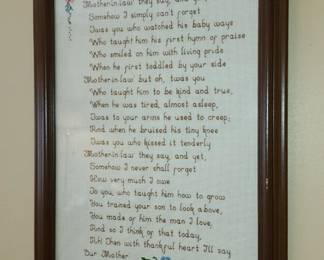 "Mother-in-law" they say, and yet,
Somehow I simply can't forget
'Twas you who watched his baby ways
Who taught him his first hymn of praise
Who smiled on him with loving pride
When he first toddled by your side
"Mother-in-law" but oh, 'twas you
Who taught him to be kind and true,
When he was tired, almost asleep,
'Twas to your arms he used to creep;
And when he bruised his tiny knee
'Twas you who kissed it tenderly
"Mother-in-law" they say, and yet,
Somehow I never shall forget
How very much I owe
To you, who taught him how to grow
You trained your son to look above,
You made of him the man I love,
And so I think of that today,
Ah! Then with thankful heart I'll say
Our Mother